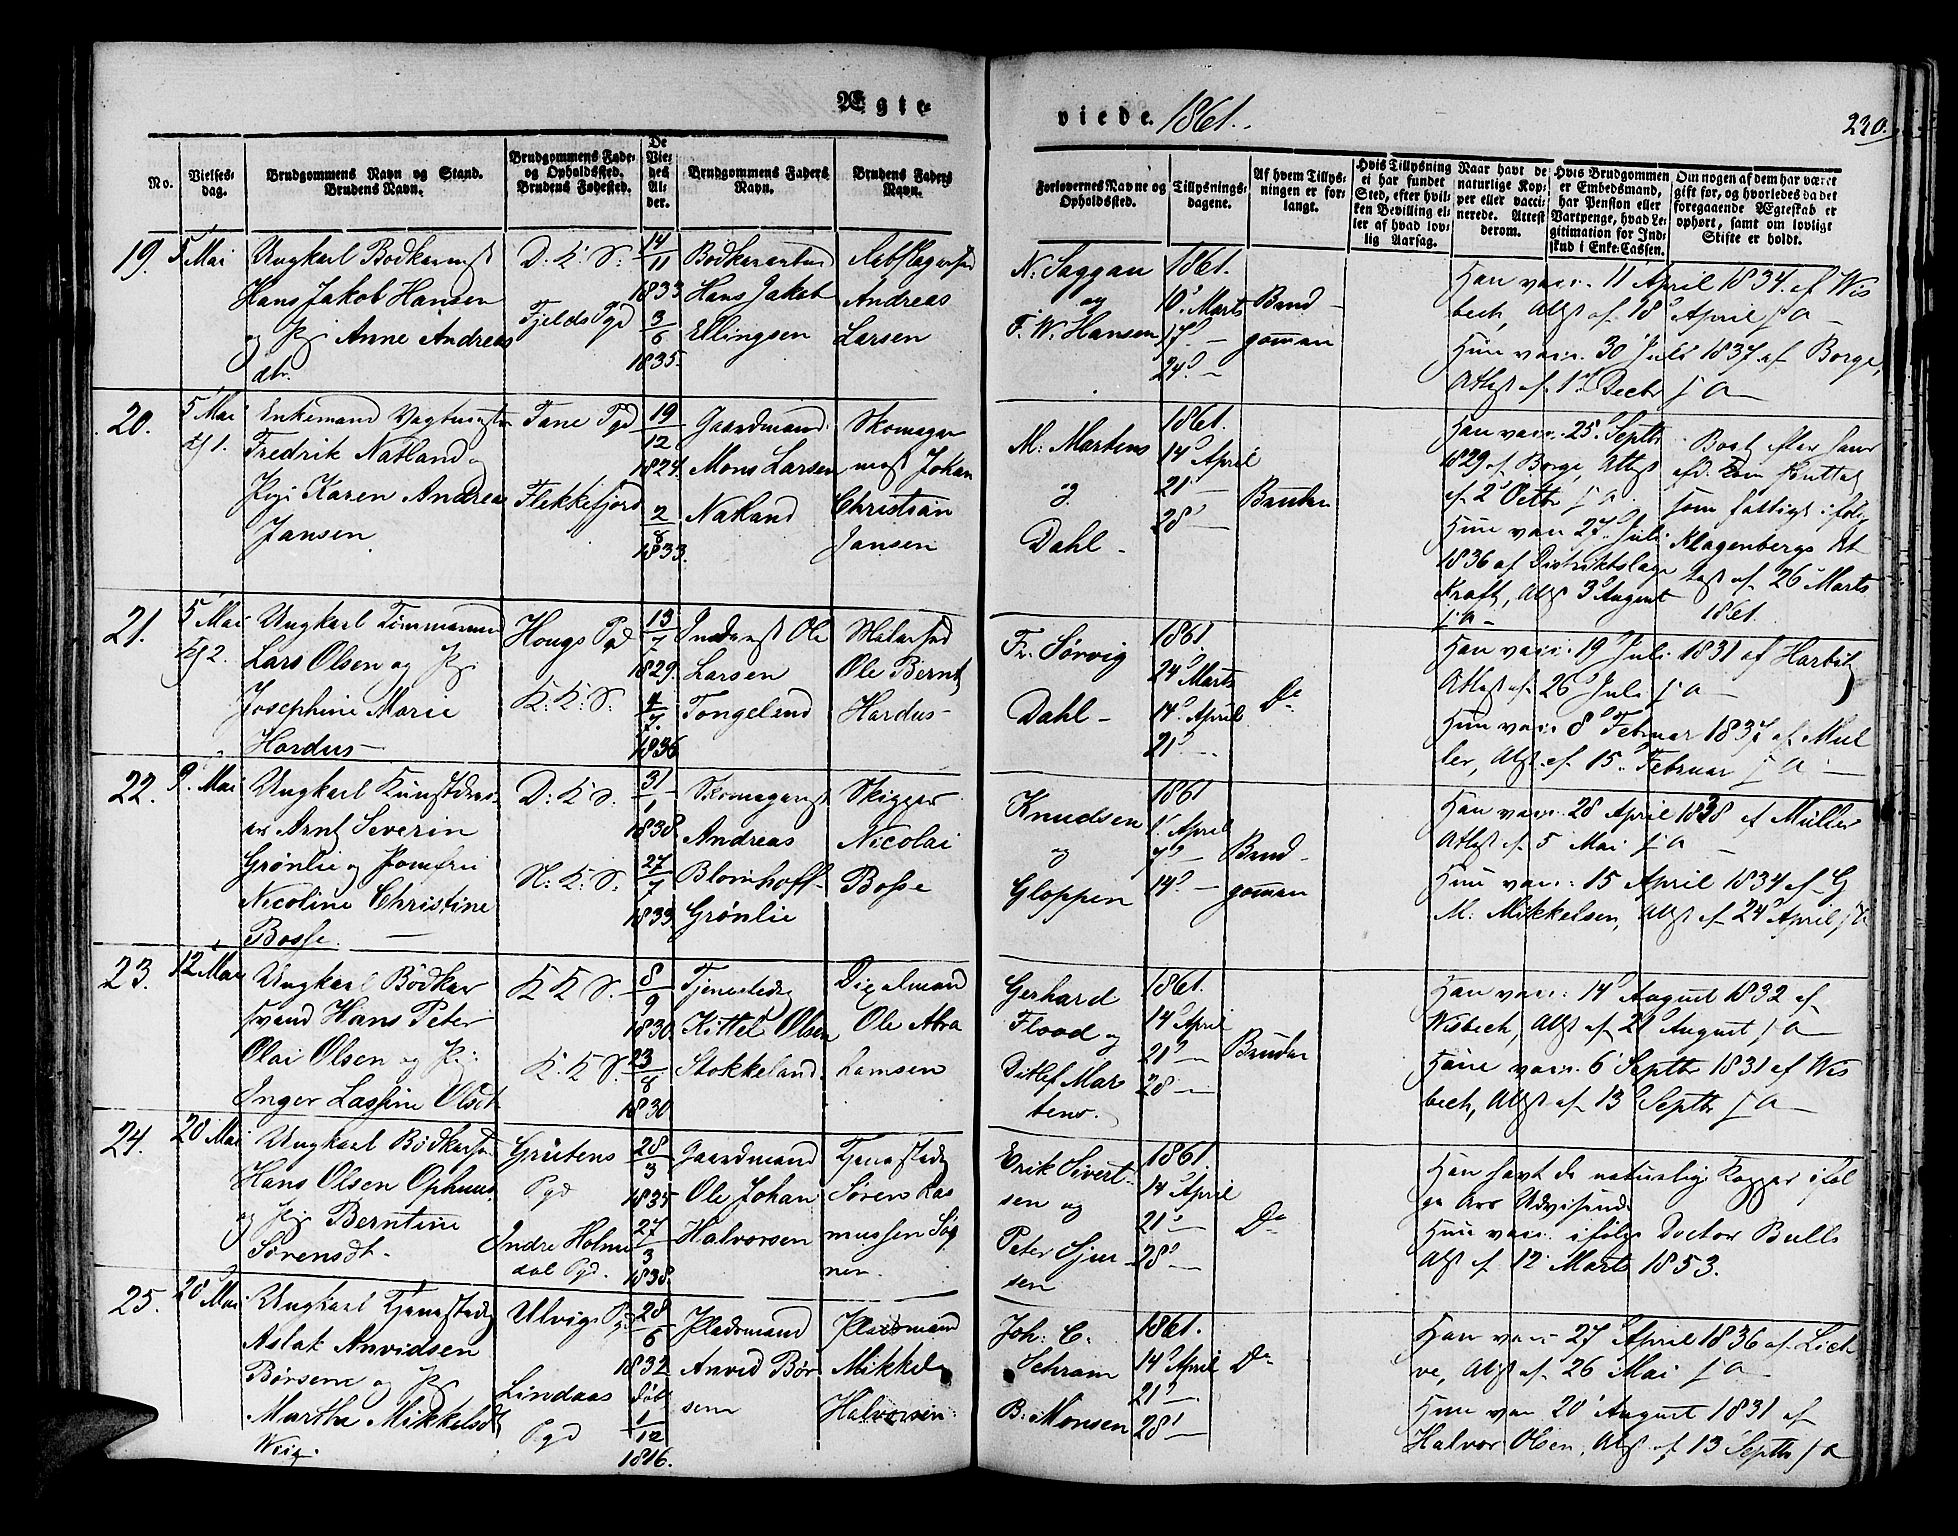 Ægte-
viede. 1861.
230.
No.
Vielses-
dag.
Brudgommens Navn og Stand.
Brudens Navn.
Brudgommens Føde-
og Opholdssted.
Brudens Fødested.
De
Vie-
des
Al-
der.
Brudgommens Faders
Navn.
Brudens Faders
Navn.
Forlovernes Navne og
Opholdssted.
Tillysnings-
dagene.
Af hvem Tillys-
ningen er for-
langt.
Hvis Tillysning
ei har fundet
Sted, efter hvil-
ken Bevilling el-
ler af hvad lov-
lig Aarsag.
Naar havt de
naturlige Kop-
per eller vacci-
nerede. Attest
derom.
Hvis Brudgommen
er Embedsmand,
har Pension eller
Vartpenge, hvad Le-
gitimation for Ind-
skud i Enke-Cassen.
Om nogen af dem har været
gift før, og hvorledes da det
foregaaende Ægteskab er
ophørt, samt om lovligt
Skifte er holdt.
19. 5 Mai
Ungkarl Bødkersv
Hans Jakob Hansen
og Pig Anne Andreas
dtr.
D. K. S.
Fjelds Pgd
14/11
1833
3/6
1835.
Hans Jakob
Ellingsen
Andreas
Larsen
N. Saggau
og
F. W. Hansen
1861.
10 Marts
17 -
24 -
Brud-
gomen
Han vacc. 11 April 1834 af Wis
bech, Attst af 18 April s a -
Hun vacc. 30 Juli 1837 af Borge,
Attst af 1 Decbr s a -
20. 5 Mai
Kl 1.
Enkemand
Fredrik Natland og
Pige Karen Andrea
Jansen
Fane Pgd
Flekkefjord
19/12
1824.
2/8
1833.
Gaardmand
Mons Larsen
Natland
Skomager
mest Johan
Christian
Jansen
M. Martens
og
Dahl -
1861.
14 April
21 -
28 -
Bruden
Han vacc. 25 Septbr
1829 af Borge, Attst
af 2 Octbr s a.
Hun vacc 27 Juli
1836 af Distriktslæge
Kraft, Attst 3 August
s a -
som fattigt ifølge
Klagenbergs At
test af 26 Marts
1861.
21. 5 Mai
Kl 2.
Ungkarl Tømmermd
Lars Olsen og Pig
Josephine Marie
Hardus -
Hougs Pgd
K. K. S.
13/7
1829.
4/7
1836
Ole
Larsen
Malersvd
Ole Bernt
Hardus -
Fr. Sørvig
Dahl -
1861
24 Marts
14 April
21 -
Do
Han vacc. 19 Juli 1831 af Harbitz
Attst af 26 Juli s a -
Hun vacc 8 Februar 1837 af Mül
ler, Attst af 15 Februar s a -
22. 9 Mai
Ungkarl
Arnt Severin
Grønlie og Jomfru
Nicoline Christine
Bosse. -
D. K. S.
N. K. S.
31/1
1838.
27/7
1833
Skomagerm
Andreas
Blomhoff
Grønlie
Skipper
Nicolai
Bosse
Knudsen
og
Gloppen
1861
1 April
7 -
14 -
Brud-
gomen
Han vacc. 28 April 1838 af Müller
Attst af 5 Mai s a -
Hun vacc. 15 April 1834 af G
M. Mikkelsen, Attst af 24 April s a
23. 12 Mai
Ungkarl Bødker
svend Hans Peter
Olai Olsen og Pig
Inger Lassine Olsdt
K K S.
K. K. S.
8/9
1830
23/8
1830
Tjenestedrg
Kittel Olsen
Stokkeland
Ole Abra
hamsen
Gerhard
Flood og
Ditlef Mar
tens.
1861.
14 April
21 -
28 -
Bruden
Han vacc. 14 August 1832 af
Wisbech, Attst af 21 August s a -
Hun vacc. 6 Septbr 1831 af Wis
bech, Attst af 13 Septbr s a -
24. 20 Mai
Ungkarl Bødkersv
Hans Olsen Ophuus
og Pig Berntine
Sørensdt.
Grütens
Pgd
Indre Holme
dal Pgd.
28/3
1835
27/3
1838.
Gaardmand
Ole Johan
Halvorsen
Tjenestedrg
Søren Ras
mussen
Erik Sivert-
sen og
Peter Sjur-
sen
1861
14 April
21 -
28 -
Do
Han havt de naturlige Kopper iføl
ge Ars Udvisende
Hun vacc. ifølge Doctor Bulls
Attst af 12 Marts 1853.
25. 20 Mai
Ungkarl Tjenestedrg
Aslak Anvidsen
Børsem og Pig
Martha Mikkelsdt
Ulvigs Pgd
Lindaas
Pgd
28/6
1832
Døbt
1/12
1816.
Pladsmand
Anvid Bør
sem
Pladsmand
Mikkel
Halvorsen
Joh: C.
Schram
B. Monsen
1861.
14 April
21 -
28 -
Do
Han vacc 27 April 1836 af
Attst af 26 Mai s a -
Hun vac 20 August 1831 af
Halvor Olsen, Attst af 13 Septbr s a